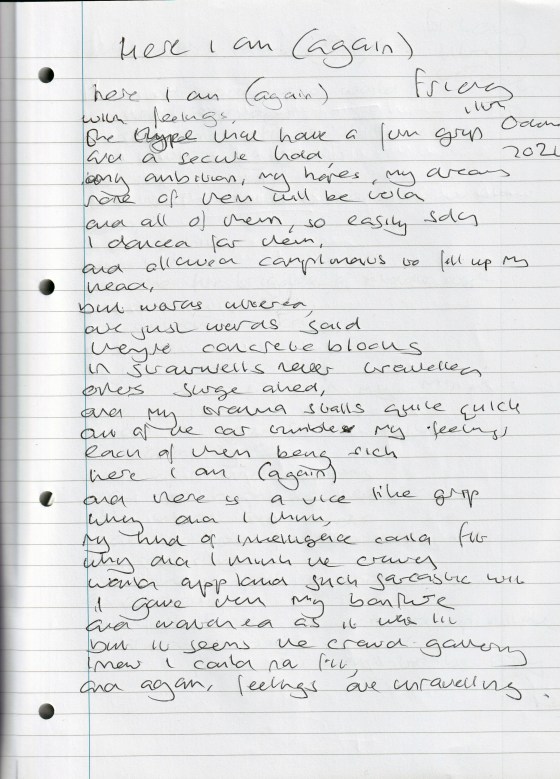 Here I am (again)
here I am (again) Friday
with feelings, 11th
the type that have a firm grip
and a secure hold,
my ambition, my hopes, my dreams
none of them will be
and all of them, so easily
I danced for them,
and allowed compliments to fill up my
head,
but words uttered,
are just words said
they're concrete blocks
in never travelled
others surge ahead,
and my stalls quite quick
out of the car my feelings
each of them being sick
here I am (again)
and there is a vice like grip
why did I think,
my kind of intelligence could fit
why did I think the crowd
would applaud such sarcastic wit
I gave them my bonfire
and watched as it was lit
but it seems the crowd gathering
knew I could na fit,
and again, feelings are unravelling.